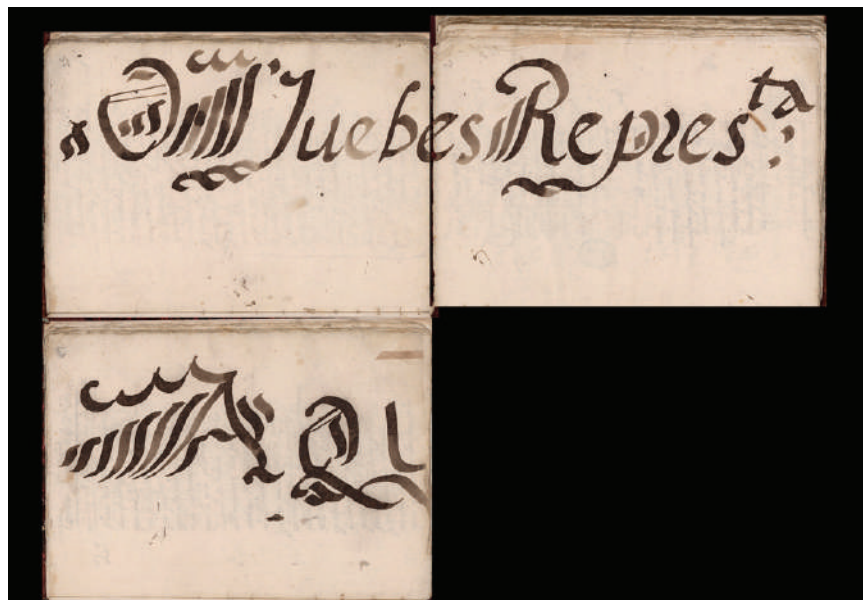 Juebes Repres:ta
AQU